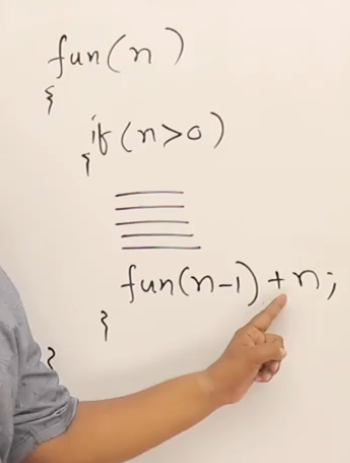 fun(n)
{
if(n>0)
{
fun(n-1)+n;
}
}